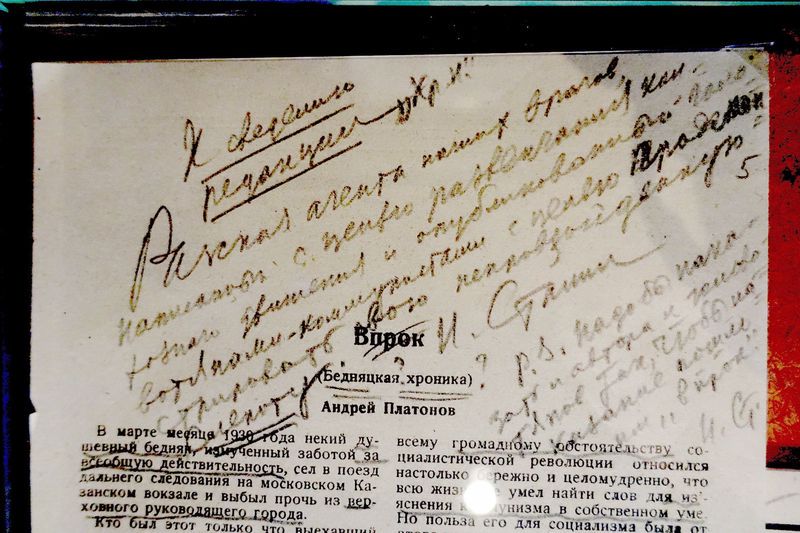 К сведению
редакции „Кр. Н."
Рассказ агента наших врагов,
написанный с целью развенчания кол-
хозного движения и опубликованный голо-
вотяпами-коммунистами с целью продемон-
стрировать свою непревзойденную
слепоту.
И. Сталин
P.S. Надо бы нака-
зать и автора и голово-
тяпов так, чтобы на-
казание пошло
им „впрок".
И. Ст.
5
Впрок
?
?
(Бедняцкая хроника)
Андрей Платонов
В марте месяца 1930 года некий ду-
шевный бедняк, измученный заботой за
всеобщую действительность, сел в поезд
дальнего следования на московском Ка-
занском вокзале и выбыл прочь из вер-
ховного руководящего города.
Кто был этот только что выехавший
всему громадному обстоятельству со-
циалистической революции относился
настолько бережно и целомудренно, что
всю жизнь не умел найти слов для из'-
яснения коммунизма в собственном уме.
Но польза его для социализма была от